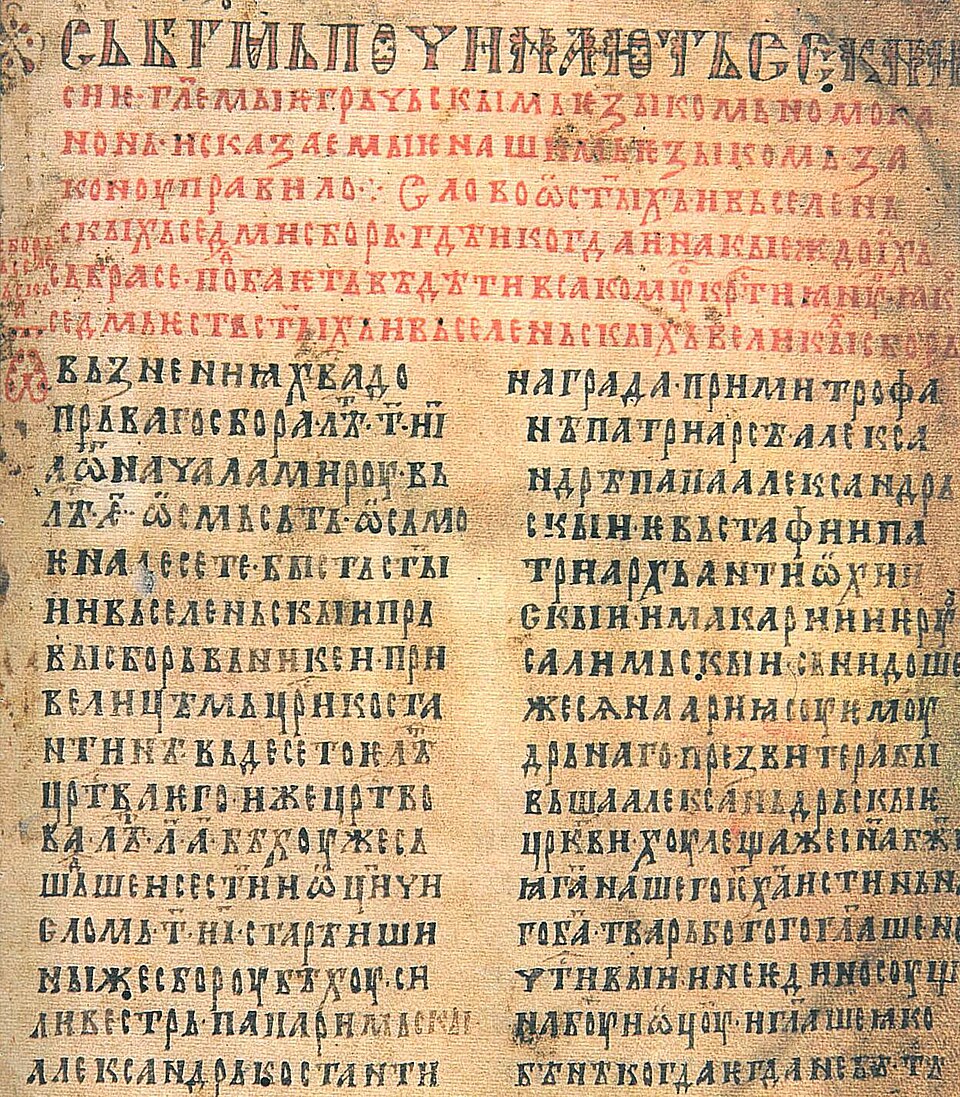 СЬ БГ҃МЬ ПОЧИНАЮТЬ СЕ КНИ
сиѥ· гл҃ѥмыѥ грьчьскымь ѥзыкомь номока
нонь· исказаѥмыѥ нашимь ѥзыкомь· за
коноу правило·: Слово ѡ ст҃ыхь и вьселѣнь
скыхь седми сборь· гдѣ и когда и на кыеждо ихь
сьбра се· подⷪ҇баѥть вѣдѣти всакомꙋ крⷭ҇тиꙗнинꙋ· ꙗк
седмь ѥсть ст҃ыхь и вьселеньскыхь великыⷯ сборь
вьзнении хва до
прьваго сбора· лѣⷮ· т҃· и҃і
а ѿ начала мироу· вь
лѣⷮ· ѡсмьсьть· ѡсьмо
ѥ надесете· быⷭ҇ть ст҃ы
и и вьселеньскыи и прь
вы сборь вь никеи· при
велицѣмь цр҃и коста
нтинѣ· вь десетоѥ лѣⷮ
црⷭ҇тва ѥго· иже црⷭ҇тво
ва· лѣⷮ· л҃а· бѣхоу же сь
шьⷣшеи се ст҃ии ѿци· чи
сломь· т҃· и҃і· старѣиши
ны же сбороу бѣхоу· си
ливестрь· папа римьскы
александрь коста нти
награда· при митрофа
нѣ патриарсѣ· алекса
ндрь папа александрь
скыи· ѥвьстафии па
триархь антиѡхии
скыи· и макарии иѥрꙋ
салимьскыи· снидоше
же се на ариꙗ соуѥмоу
дрьнаго· презвитера бы
вьша александрьскыѥ
цркви· хоулеща же сн҃а бж҃
ꙗ га҃ нашего іс҃ х҃а истиньна
го ба҃· тварь бо того гл҃аше н
чтивыи· и не ѥдиносоущ
на боу и ѿцоу· и гл҃аше ꙗко
бѣ нѣкогда ѥгда не бѣ· тѣ